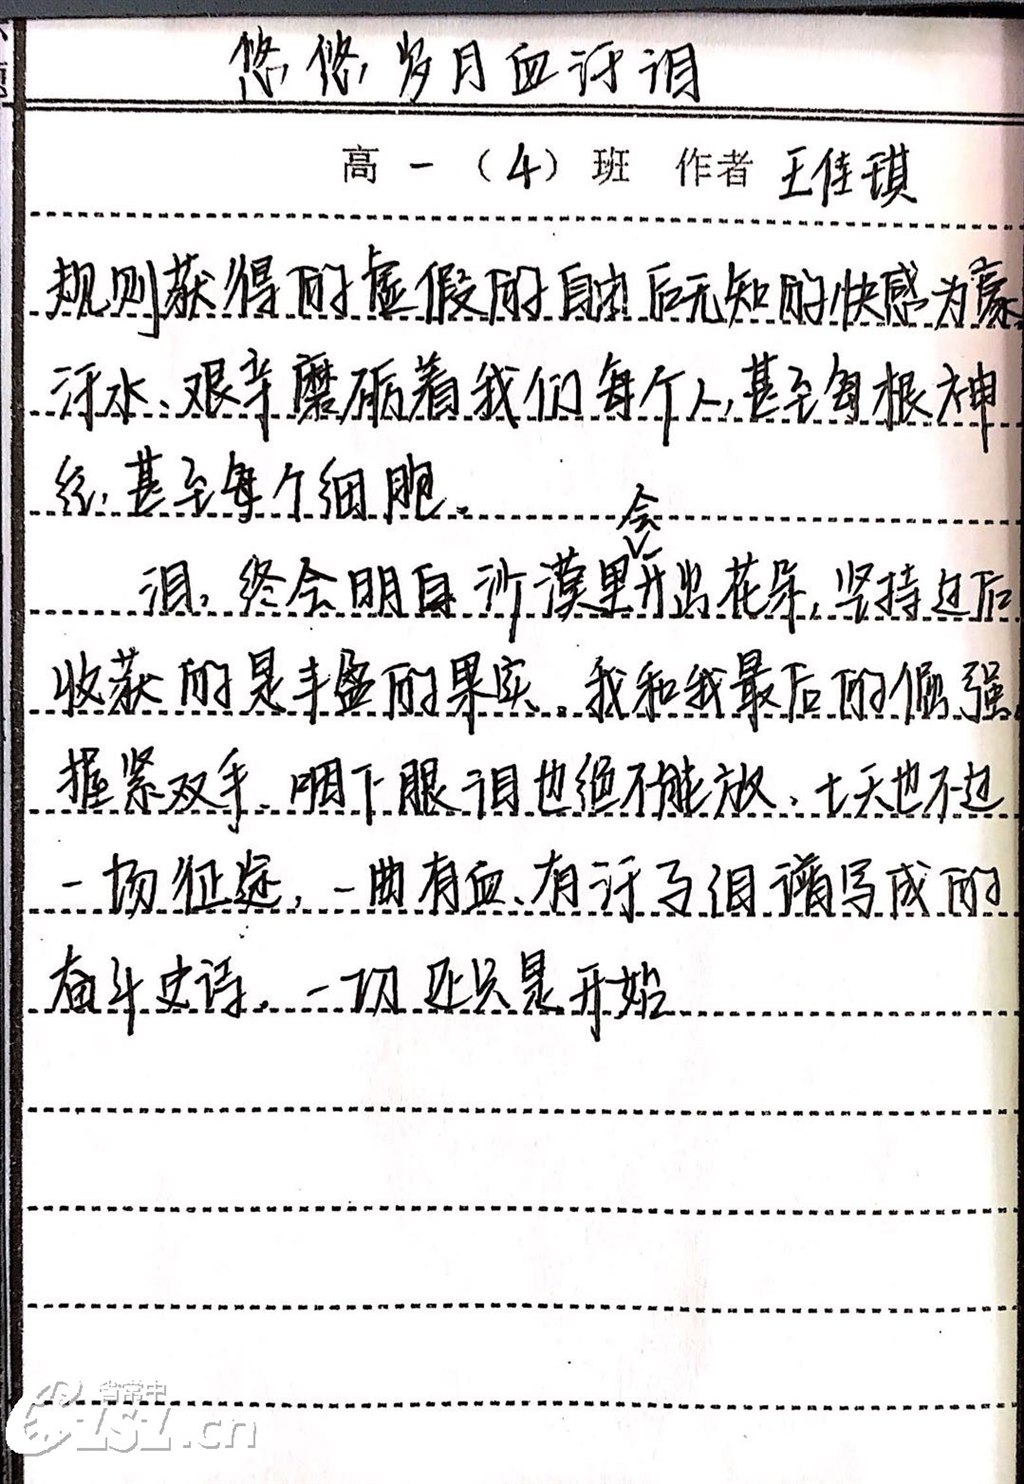 悠悠岁月血汗泪
高一（4）班 作者 王佳琪
规则获得的虚假的自由后无知的快感为豪。
汗水、艰辛磨砺着我们每个人，甚至每根神
经，甚至每个细胞。
泪，终会明白沙漠里会开出花朵，坚持过后
收获的是丰盛的果实。我和我最后的倔强，
握紧双手、咽下眼泪也绝不能放、七天也不过
一场征途，一曲有血、有汗与泪谱写成的
奋斗史诗。一切还只是开始
省常中
CZSZ.cn